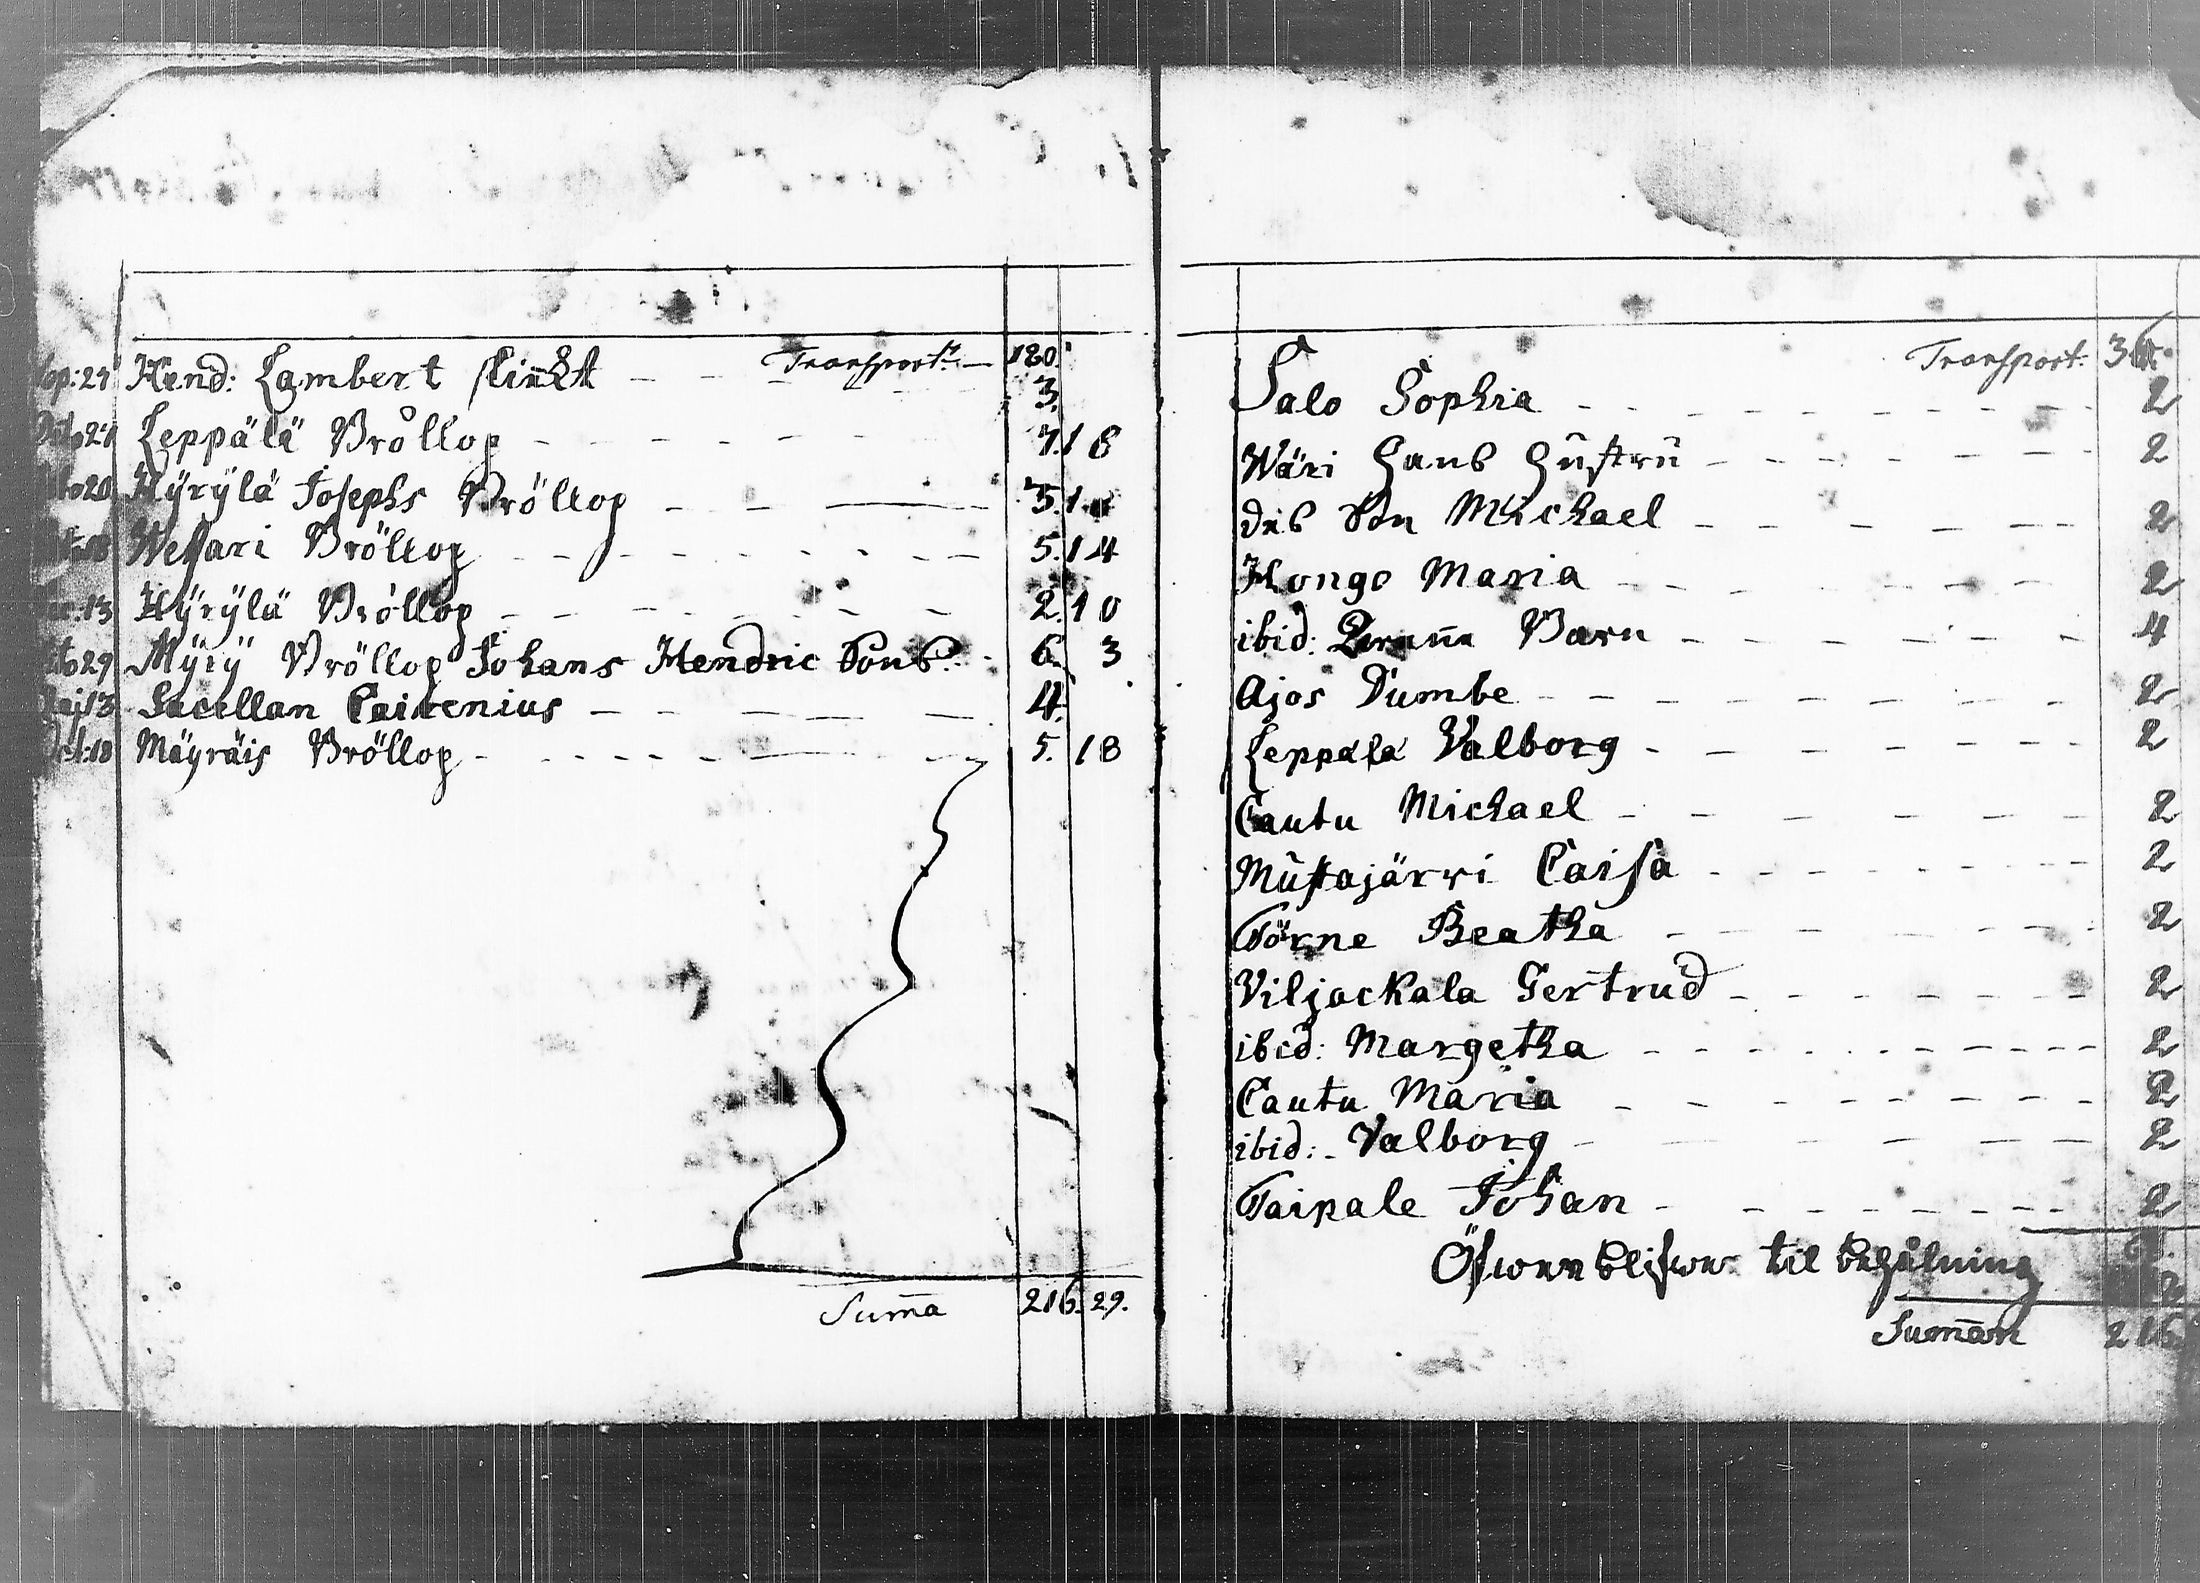 Transport:— 180.
Hend: Lambert skänkt — 3.
Leppälä Bröllop — 7. 18
Hÿrÿlä Josephs Bröllop — 3. 1
Wessari Bröllop — 5. 14
Hÿrÿlä Bröllop — 2. 10
29 Mÿrÿ Bröllop Johans Hendric Sons — 6. 3
13 Sacellan Caitenius — 4.
18 Mäyräis Bröllop — 5. 18
Sum̄a 216. 29.
Transport:
Salo Sophia — 2
Wäri Hans Hustru — 2
des Son Michael — 2
Hongo Maria — 2
ibid: Barn — 4
Ajos Dumbe — 2
Leppälä Valborg — 2
Cautu Michael — 2
Mustajärwi Caisa — 2
Törne Beatha — 2
Viljackala Gertrud — 2
ibid: Margetha — 2
Cautu Maria — 2
ibid: Valborg — 2
Taipale Johan — 2
Öfwer blifwer til behålning
Sum̄an 216